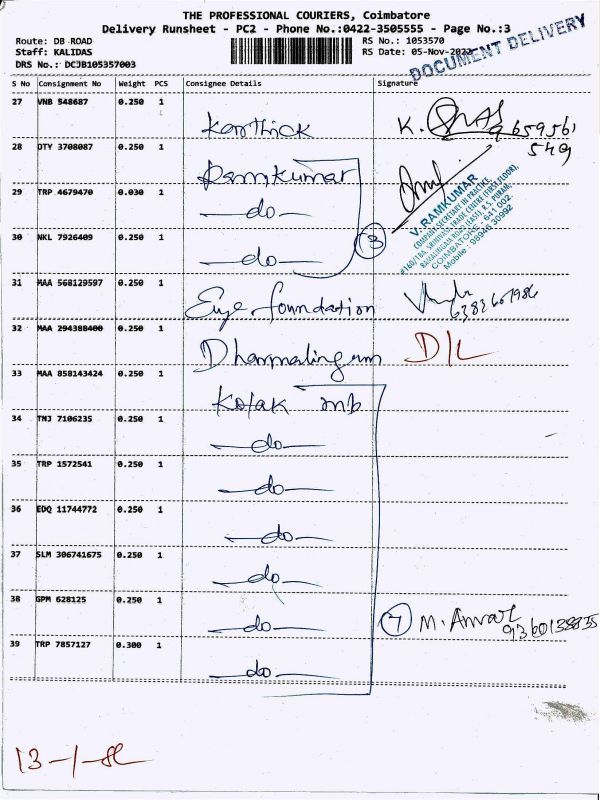 THE PROFESSIONAL COURIERS, Coimbatore
Delivery Runsheet - PC2 - Phone No.:0422-3505555 - Page No.:3
Route: DB ROAD
Staff: KALIDAS
DRS No.: DCJB105357003
RS No.: 1053570
RS Date: 05-Nov-2022
DOCUMENT DELIVERY
S No Consignment No Weight PCS Consignee Details Signature
27 VNB 548687 0.250 1 Karthick K. 9659561
549
28 DTY 3708087 0.250 1 Ramkumar
29 TRP 4679470 0.030 1 -do-
30 NKL 7926409 0.250 1 -do- 3
V. RAMKUMAR
COMPANY SECRETARY IN PRACTICE,
#160/18A, SRINIVASA TRADE CENTRE (FIRST FLOOR),
(EAST), R.S. PURAM,
COIMBATORE - 641 002.
Mobile : 98946 30992
31 MAA 568129597 0.250 1 Eye foundation
6382601986
32 MAA 294388400 0.250 1 Dharmalingam D/L
33 MAA 858143424 0.250 1 Kotak mb
34 TNJ 7106235 0.250 1 -do-
35 TRP 1572541 0.250 1 -do-
36 EDQ 11744772 0.250 1 -do-
37 SLM 306741675 0.250 1 -do-
38 GPM 628125 0.250 1 -do- 7 M. Anvar
39 TRP 7857127 0.300 1 -do-